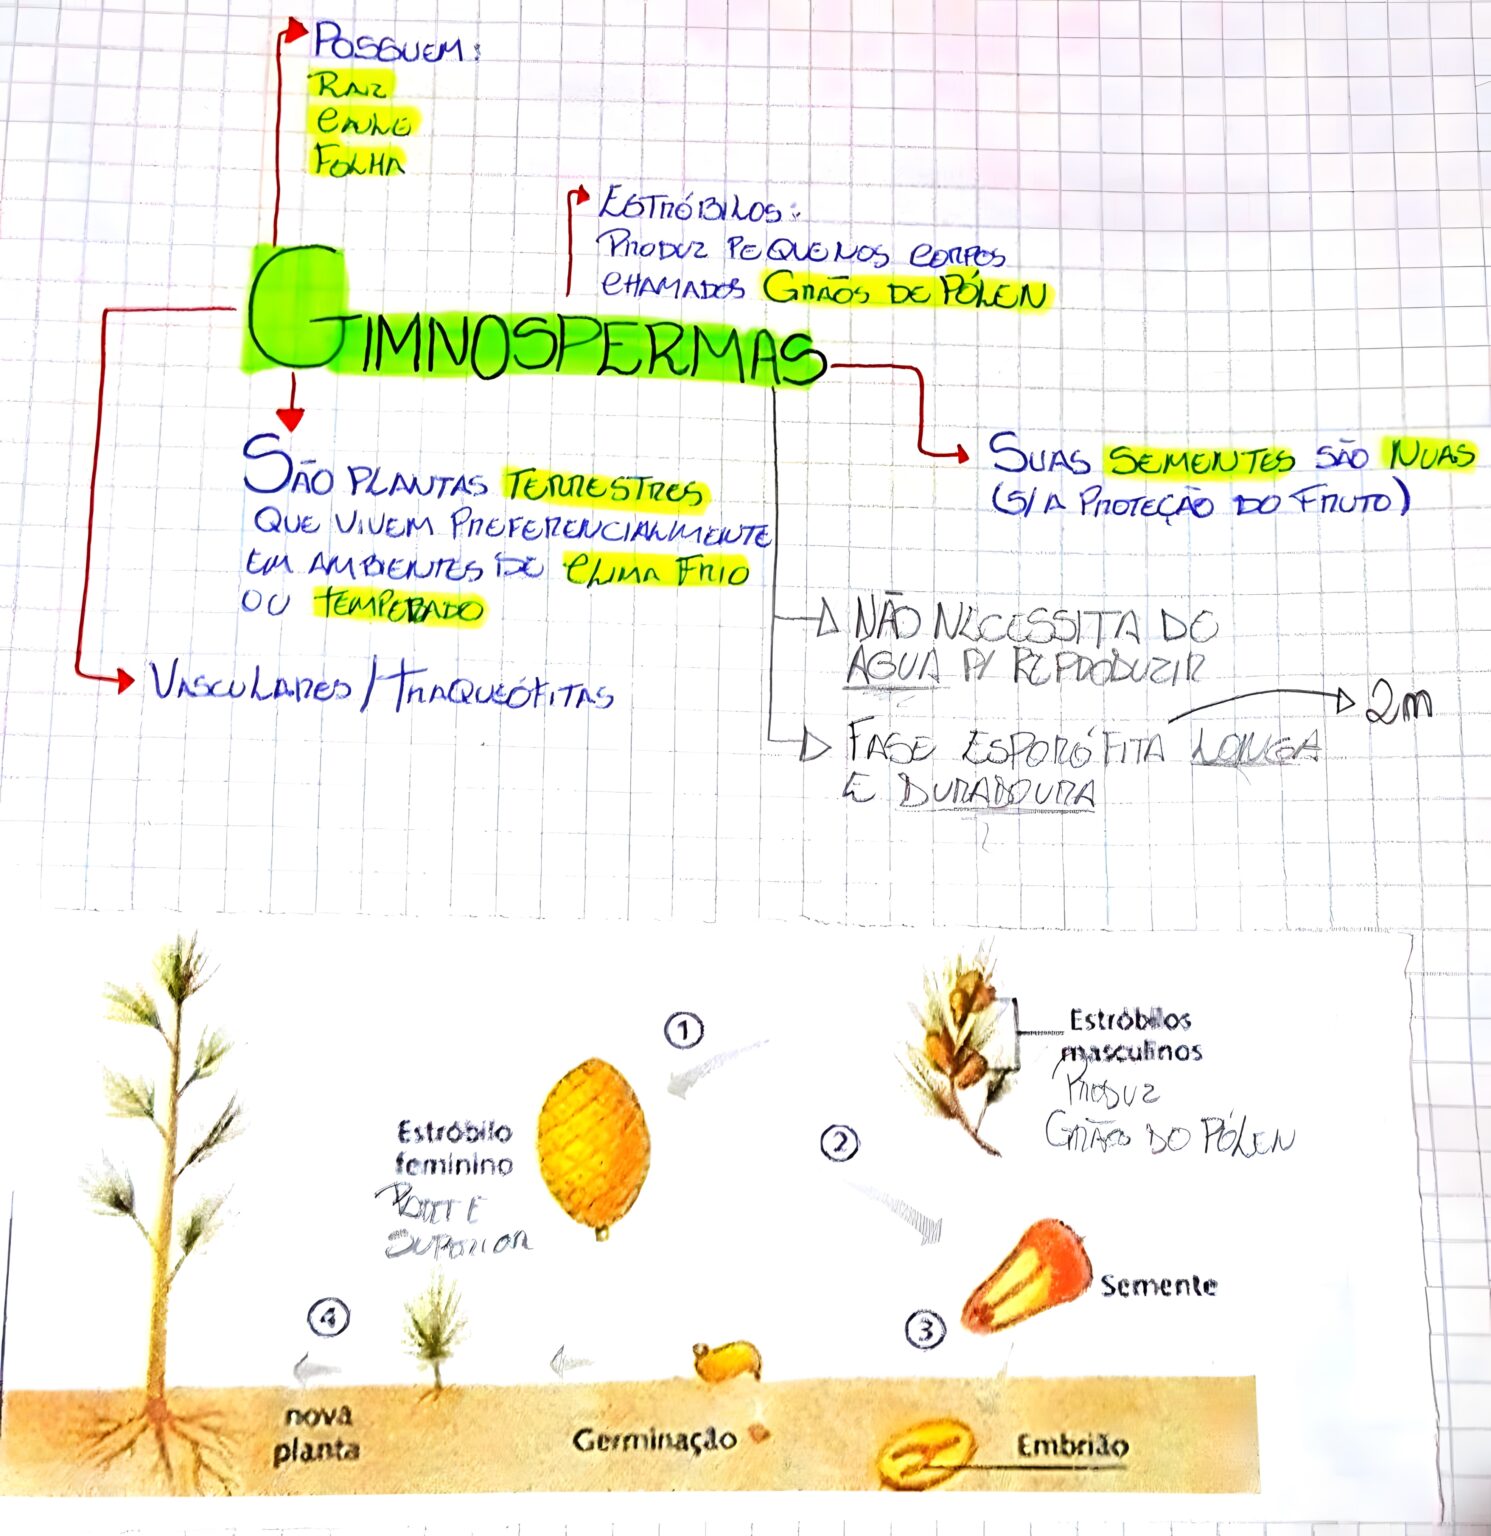 POSSUEM:
RAIZ
CAULE
FOLHA
ESTRÓBILOS:
PRODUZ PEQUENOS CORPOS
CHAMADOS GRÃOS DE PÓLEN
GIMNOSPERMAS
SUAS SEMENTES SÃO NUAS
(S/ A PROTEÇÃO DO FRUTO)
SÃO PLANTAS TERRESTRES
QUE VIVEM PREFERENCIALMENTE
EM AMBIENTES DE CLIMA FRIO
OU TEMPERADO
VASCULARES / TRAQUEÓFITAS
NÃO NECESSITA DE
ÁGUA P/ REPRODUZIR
2m
FASE ESPORÓFITA LONGA
E DURADOURA
1
Estróbilos
masculinos
PRODUZ
GRÃOS DO PÓLEN
Estróbilo
feminino
PARTE
SUPERIOR
2
Semente
3
4
nova
planta
Germinação
Embrião